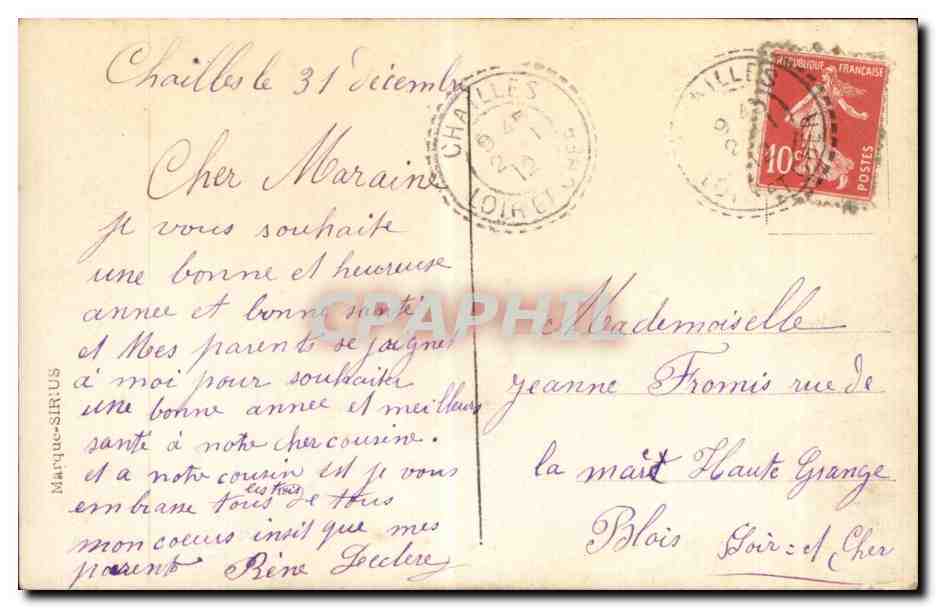 Chailles le 31 décembre
Cher Maraine
je vous souhaite
une bonne et heureuse
annee et bonne sante
et Mes parents se joignes
à moi pour souhaiter
une bonne annee et meilleurs
santé à notre cher cousine.
et a notre cousin est je vous
embrasse tous les trois de tous
mon coeurs insit que mes
parent Réne Leclere
Marque-SIRIUS
CHAILLES
LOIR ET CHER
12
AILLES
REPUBLIQUE FRANÇAISE
10c
POSTES
Mademoiselle
Jeanne Fromis rue de
la Haute Grange
Blois Loir=et Cher
CPAPHIL